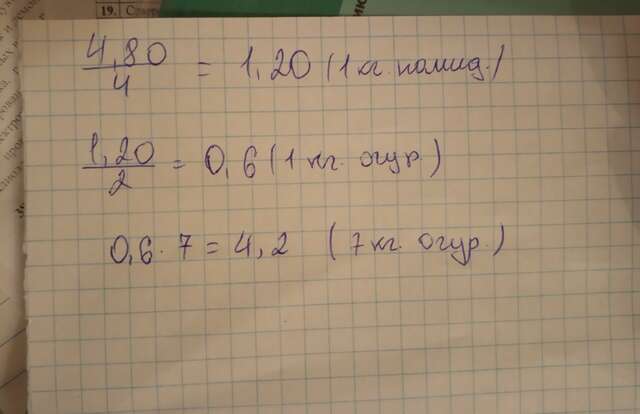 19.
4,80/4 = 1,20 (1 кг. помид.)
1,20/2 = 0,6 (1 кг. огур.)
0,6 · 7 = 4,2 (7 кг. огур.)